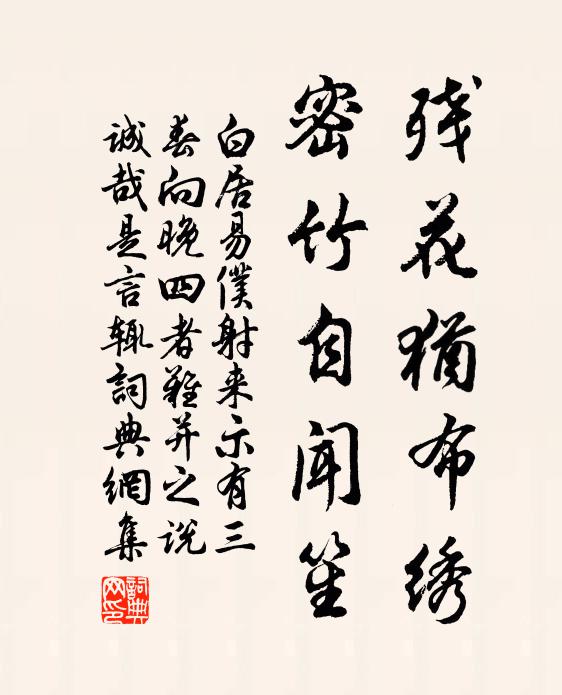 残花犹布绣
密竹自闻笙
白居易僕射来示有三
春向晚四者難并之说
诚哉是言辄詞典網集
詞典网印